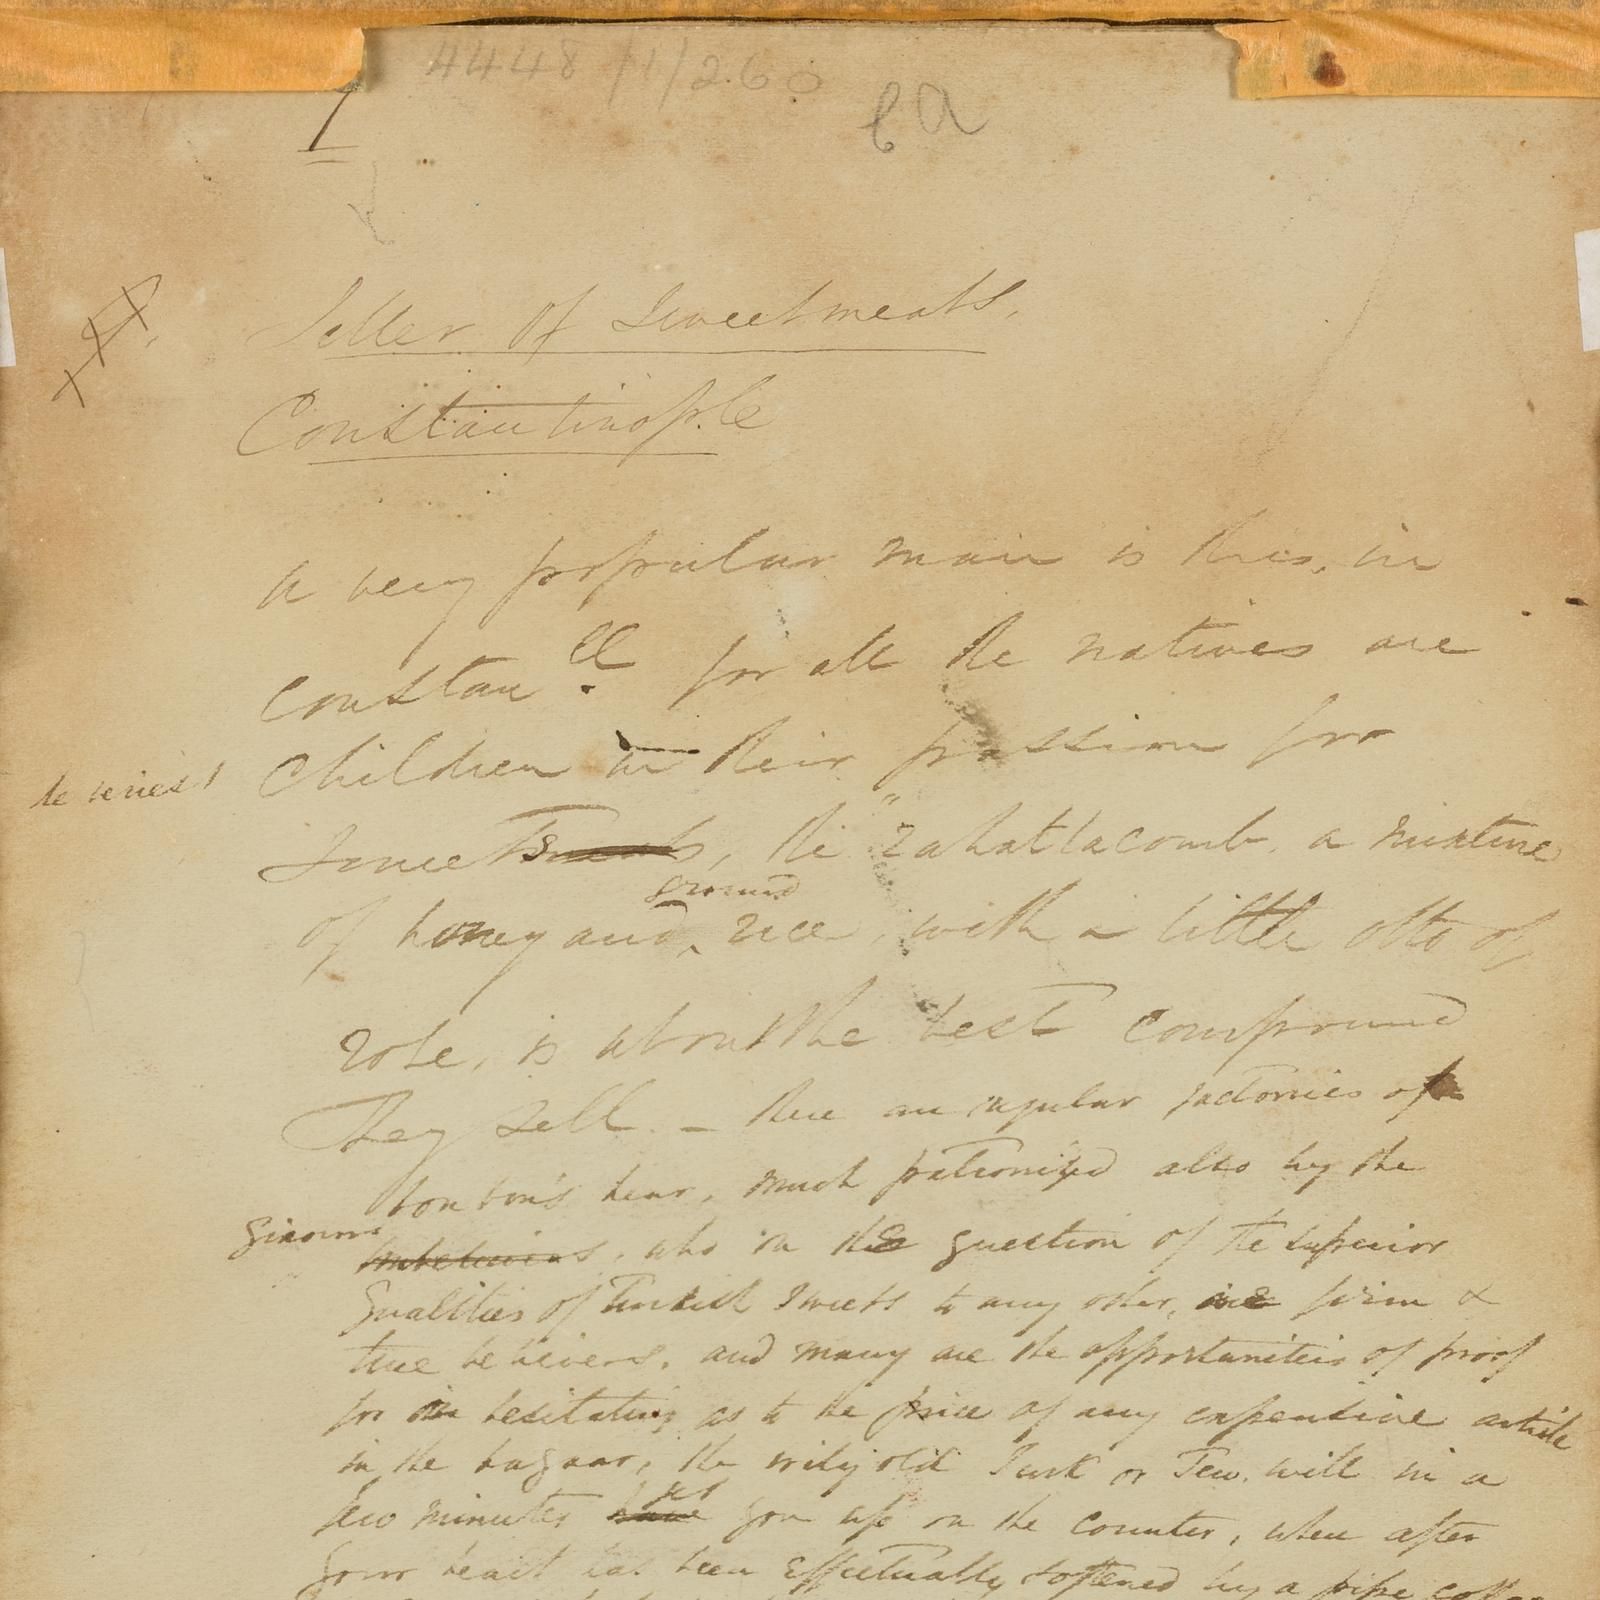 4448/1/260
1
Seller of Sweetmeats.
Constantinople
A very popular man is this, in
Constan.ple for all the natives are
Children in their passion for
Sweets, the "rahatlacomb, a mixture
of honey and ground rice, with a little otto of
rose, is about the best compound
They sell. - there are regular factories of
bon bon's hear, much patronized also by the
Giaours
unbelievers, who in the question of the superior
qualities of Turkish sweets to any other, are firm &
true believers, and many are the opportunities of proof
for in hesitating as to the price of any expensive article
in the bazaar, the wily old Turk or Jew, will in a
few minutes have get you up on the counter, when after
your heart has been effectually softened by a pipe